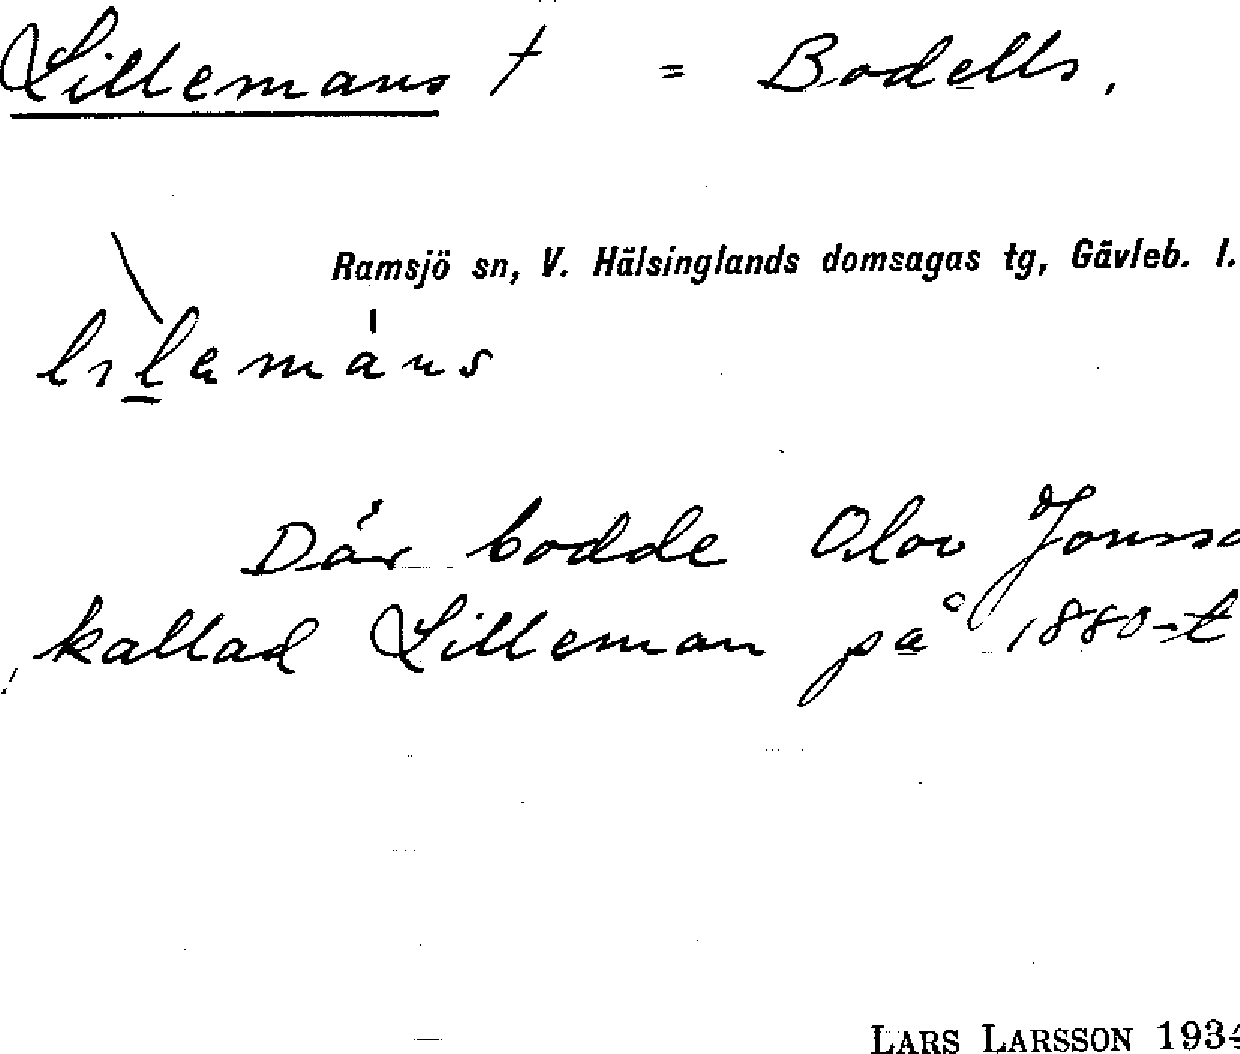 Lillemans † = Bodells.
Ramsjö sn, V. Hälsinglands domsagas tg, Gävleb. l.
Där bodde Olov Jonsso
kallad Lilleman på 1880-t
LARS LARSSON 1934